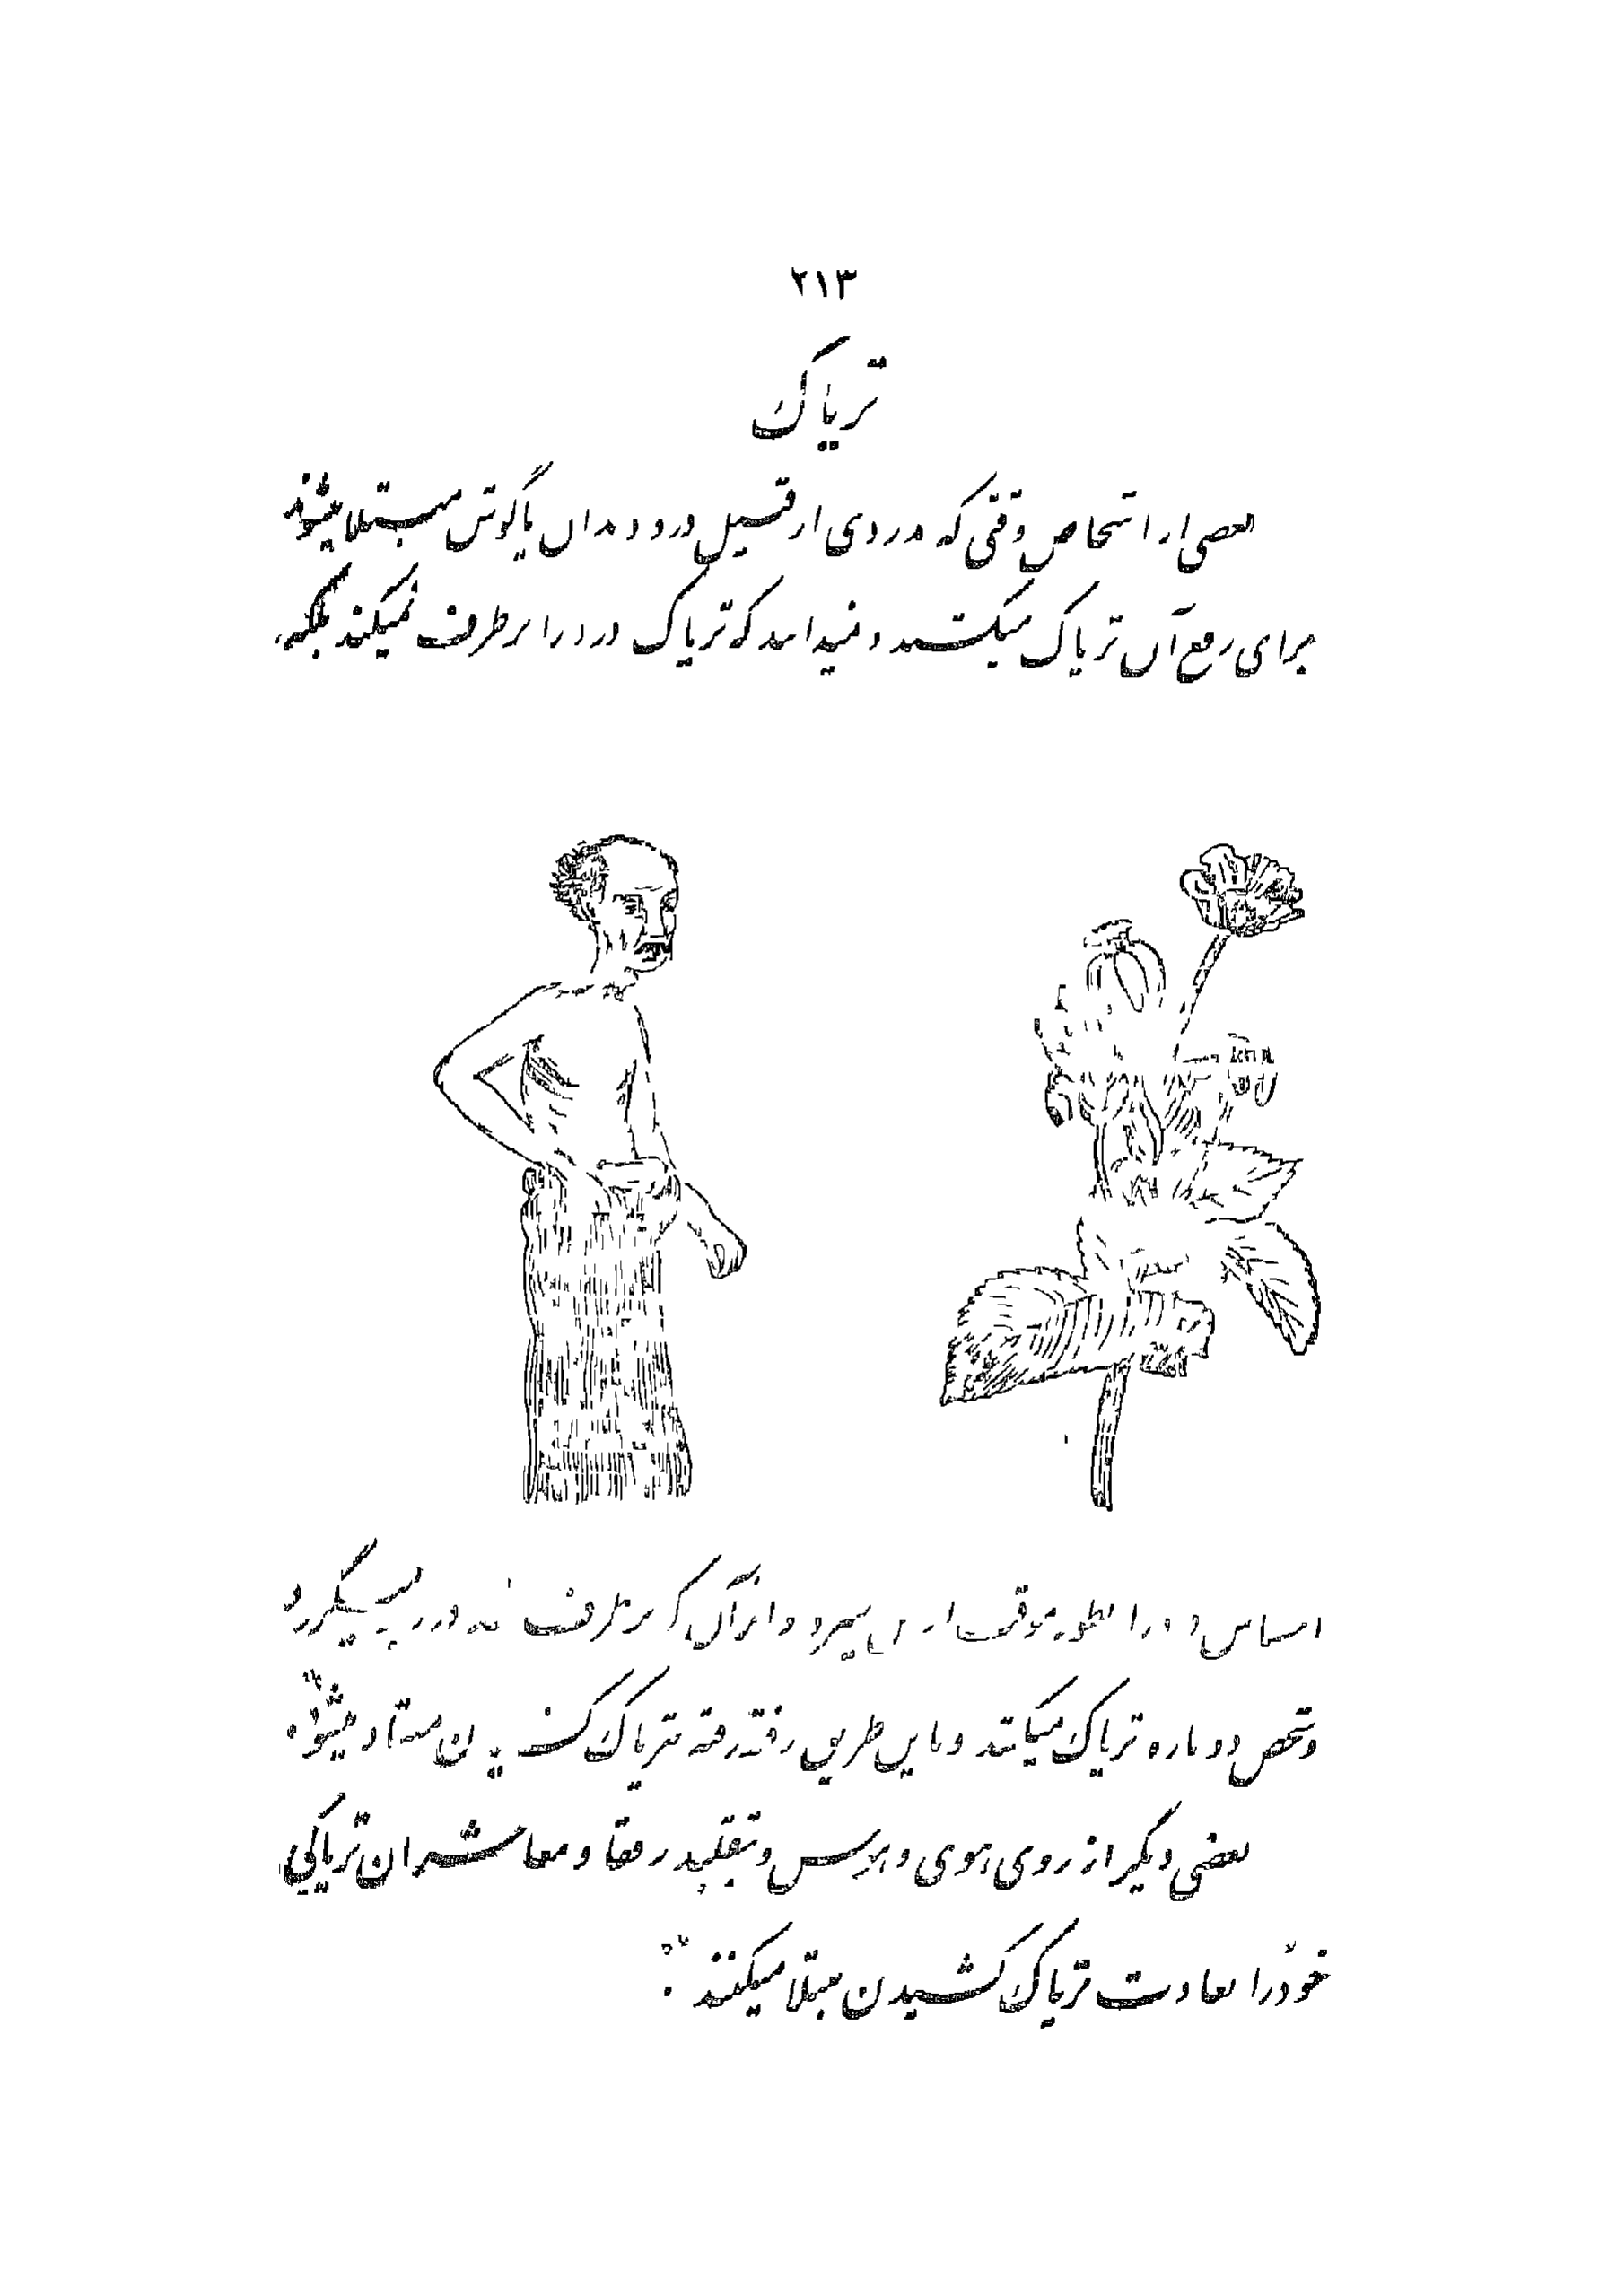 ۲۱۳
تریاک
بعضی از اشخاص وقتی که بدردی از قبیل درد دندان یا گوش مبتلا میشوند
برای رفع آن تریاک میکشند و نمیدانند که تریاک درد را برطرف نمیکند بلکه
احساس درد را بطور موقت از بین میبرد و اثر آن که برطرف شد درد بر میگردد
و شخص دوباره تریاک میکشد و باین طریق رفته رفته بتریاک کشیدن معتاد میشود.
بعضی دیگر از روی هوی و هوس و تقلید رفقا و معاشران تریاکی
خود را بعادت تریاک کشیدن مبتلا میکنند.